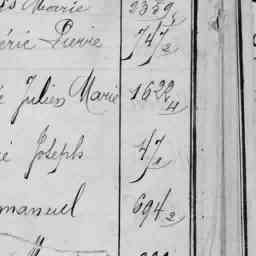 Marie 2359
Pierre 747 2
Julien Marie 1622 4
Joseph 47 2
manuel 694 2